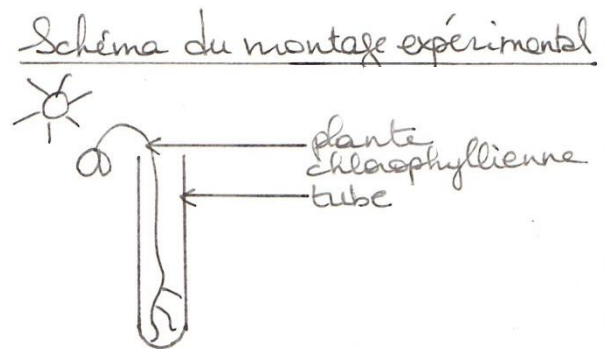 Schéma du montage expérimental
plante
chlorophyllienne
tube